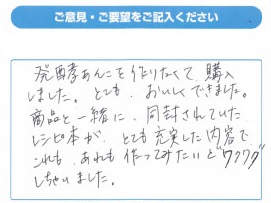 ご意見・ご要望をご記入ください
発酵あんこを作りたくて、購入
しました。とても、おいしくできました。
商品と一緒に、同封されていた
レシピ本が、とても充実した内容で
これも、あれも作ってみたいと"ワクワク"
しちゃいました。